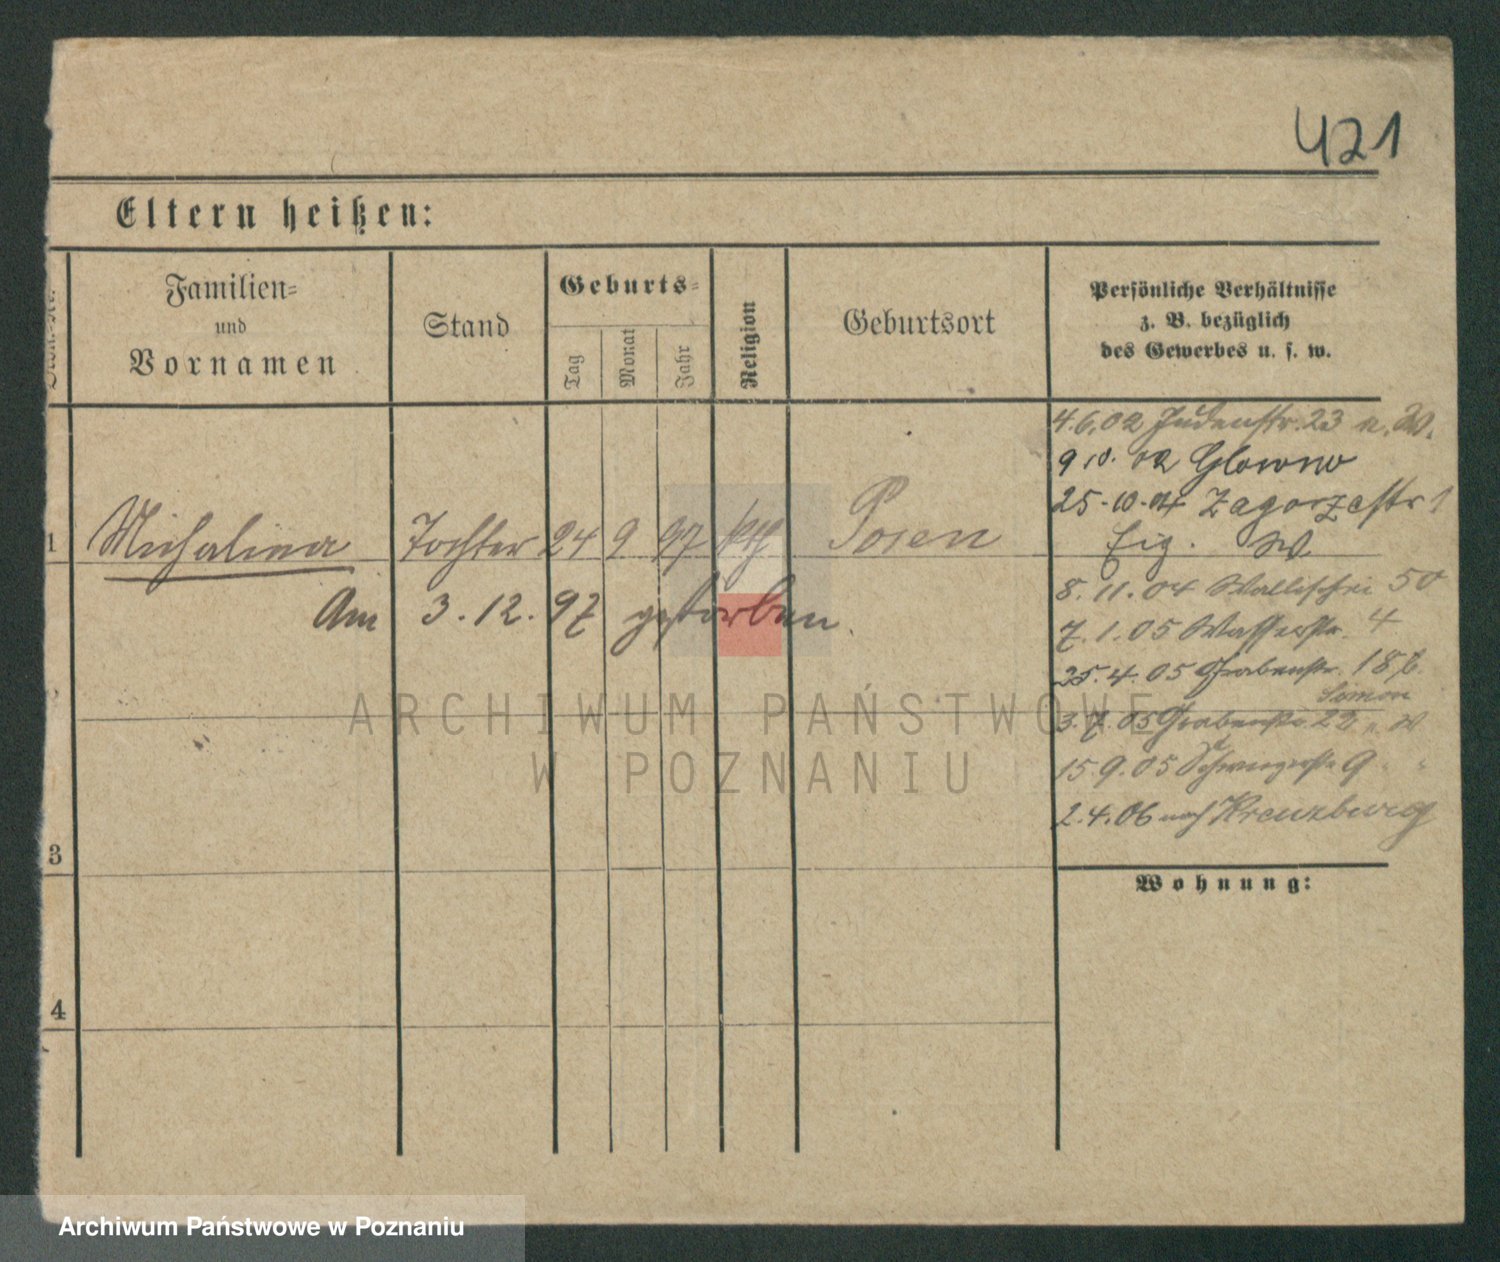 421
Eltern heißen:
Familien=
und
Vornamen
Stand
Geburts=
Tag
Monat
Jahr
Religion
Geburtsort
Persönliche Verhältnisse
z. B. bezüglich
des Gewerbes u. s. w.
1 Michalina Tochter 24 9 97 kth Posen
Am 3. 12. 97 gestorben.
3
4
4.6.02 Judenstr. 23 n. W.
9 10. 02 Glowno
25-10-04 Zagorzestr 1
Eig. W
8. 11. 04 Wallischei 50
7. 1. 05 Wasserstr. 4
25. 4. 05 Grabenstr. 18 b.
3. 7. 05 Grabenstr 22
15.9.05 9 " "
2.4.06 nach Kreuzburg
Wohnung:
ARCHIWUM PAŃSTWOWE
W POZNANIU
Archiwum Państwowe w Poznaniu